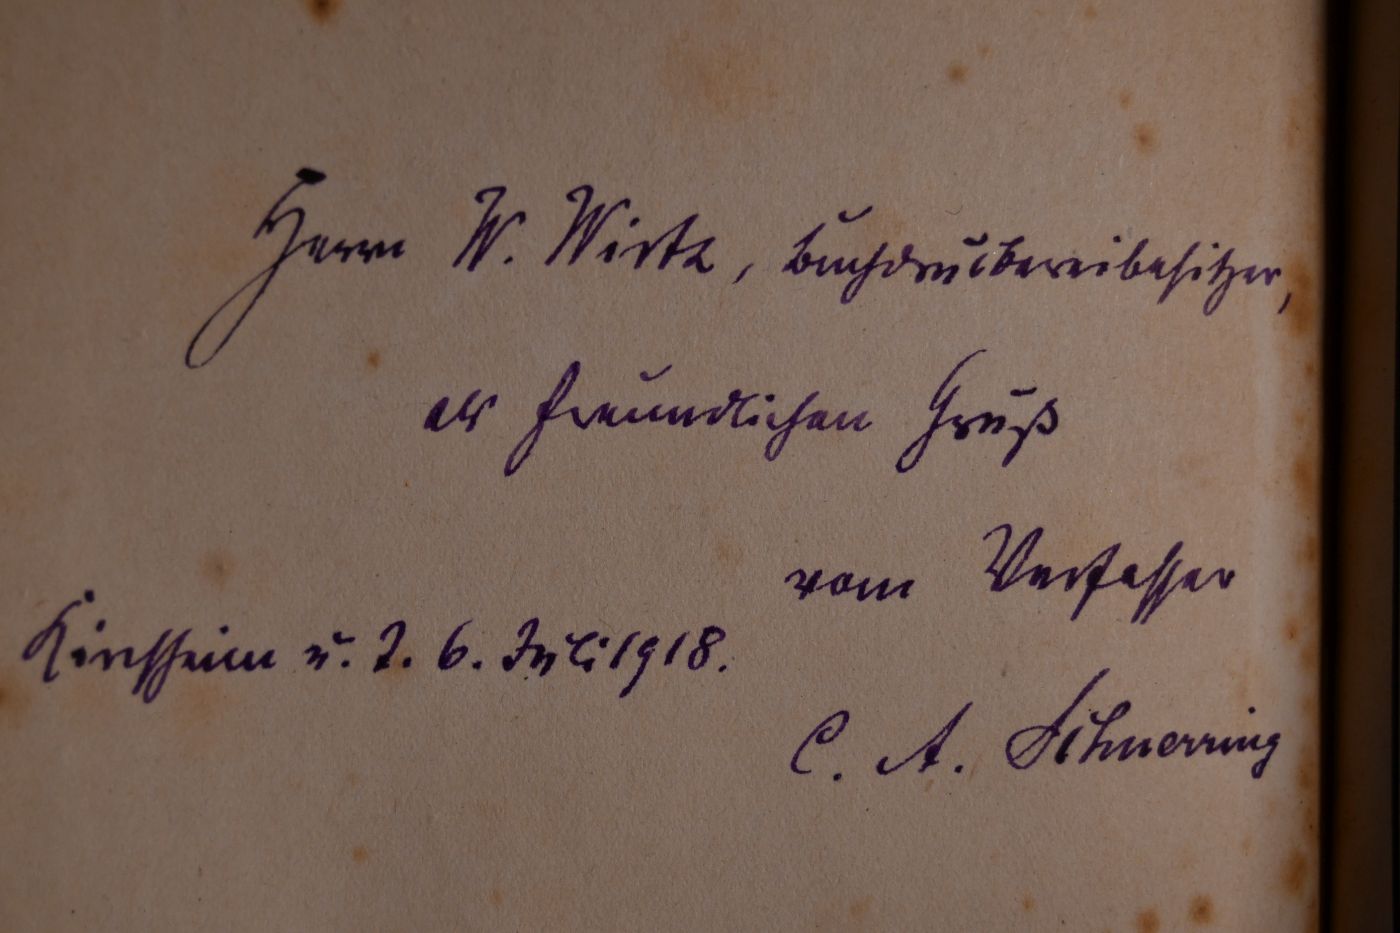 Herrn W. Wirtz, Buchdruckereibesitzer,
als freundlichen Gruß
vom Verfasser
Kirchheim u. T. 6. Juli 1918.
C. A. Schnerring